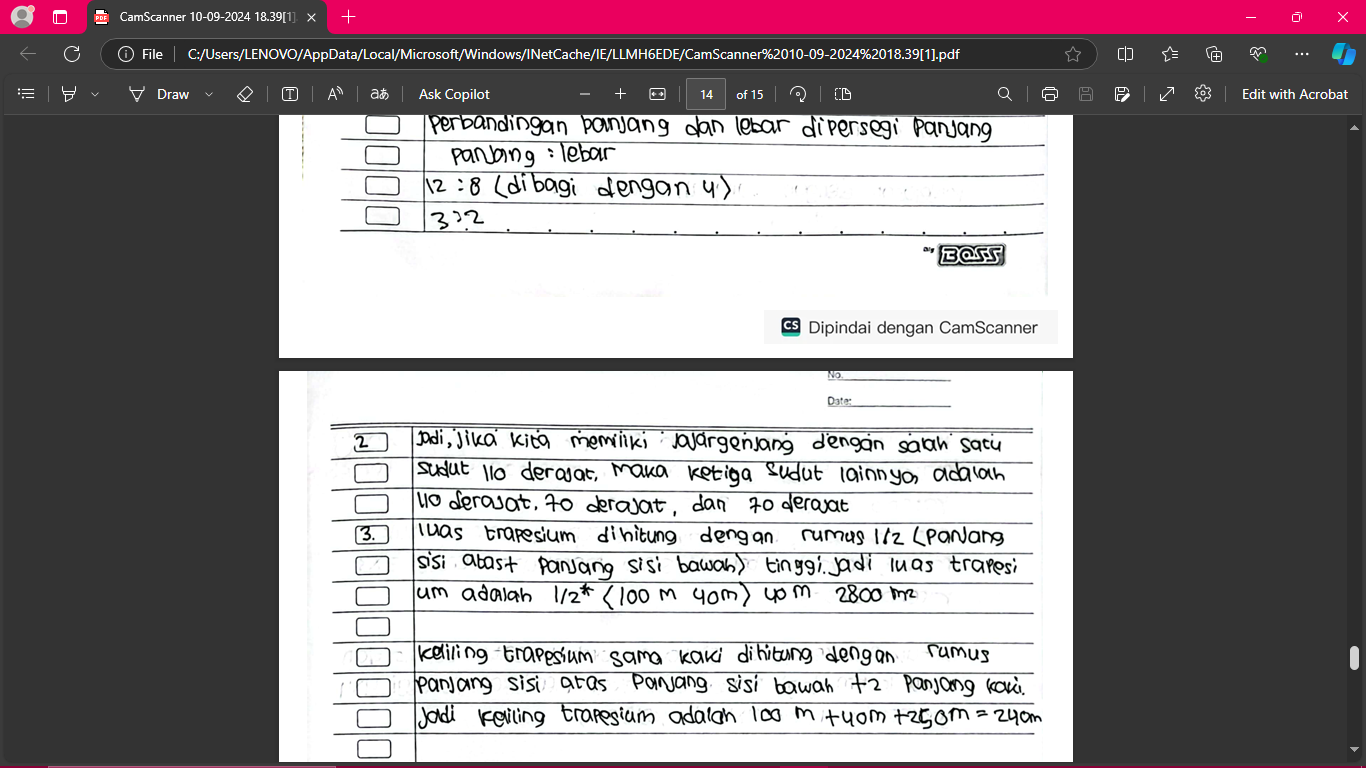 CamScanner 10-09-2024 18.39[1].
File C:/Users/LENOVO/AppData/Local/Microsoft/Windows/INetCache/IE/LLMH6EDE/CamScanner%2010-09-2024%2018.39[1].pdf
Draw Ask Copilot 14 of 15 Edit with Acrobat
perbandingan panjang dan lebar dipersegi panjang
panjang : lebar
12 : 8 (dibagi dengan 4)
3:2
BOSS
CS Dipindai dengan CamScanner
No.
Date:
2 Jadi, jika kita memiliki jajargenjang dengan salah satu
sudut 110 derajat, maka ketiga sudut lainnya adalah
110 derajat, 70 derajat, dan 70 derajat
3. luas trapesium dihitung dengan rumus 1/2 (panjang
sisi atas+ panjang sisi bawah) tinggi. jadi luas trapesi
um adalah 1/2* (100 m 40m) 40 m 2800 m2
keliling trapesium sama kaki dihitung dengan rumus
panjang sisi atas panjang sisi bawah +2 panjang kaki.
Jadi keliling trapesium adalah 100 m +40m +2 50m = 240m